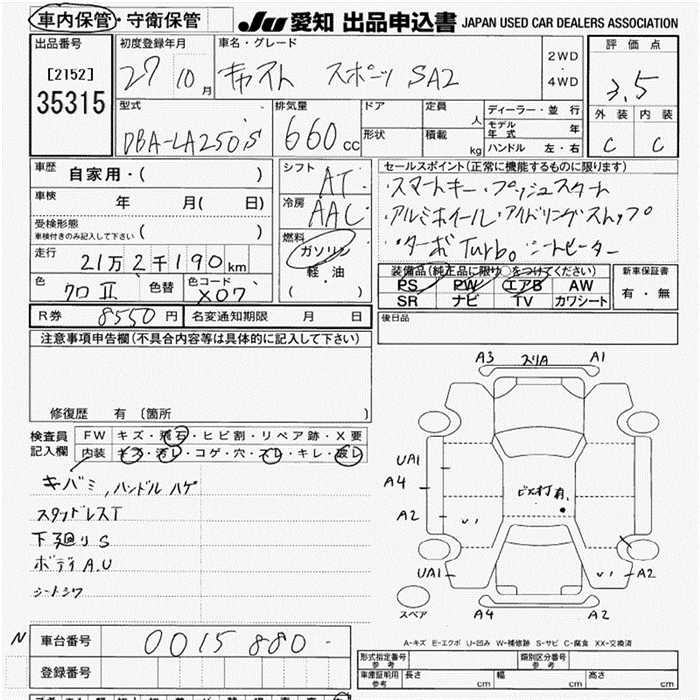 車内保管・守衛保管
JU 愛知 出品申込書 JAPAN USED CAR DEALERS ASSOCIATION
出品番号
[2152]
35315
初度登録年月
27 10月
車名・グレード
キャスト スポーツ SA2
2WD
・
4WD
評価点
3.5
外装 内装
C C
型式
DBA-LA250S
排気量
660cc
ドア
形状
定員
人
積載
kg
ディーラー・並行
モデル年式 年
ハンドル 左・右
車歴 自家用・( )
車検 年 月( 日)
受検形態
車検付きのみ記入して下さい ( )
走行 21万2千190km
色 クロⅡ 色替 色コード X07
シフト AT
冷房 AAC
燃料
ガソリン
軽油
( )
セールスポイント(正常に機能するものに限ります)
・スマートキー・プッシュスタート
・アルミホイール・アイドリングストップ
・ターボ Turbo シートヒーター
装備品(純正品に限り○をつけてください)
PS PW エアB AW
SR ナビ TV カワシート
新車保証書
有・無
R券 8550円 名変通知期限 月 日
後日品
注意事項申告欄(不具合内容等は具体的に記入して下さい)
修復歴 有 〔箇所 〕
検査員記入欄
FW キズ・飛石・ヒビ割・リペア跡・X要
内装 キズ・汚レ・コゲ・穴・スレ・キレ・破レ
キバミ,ハンドルハゲ
スタッドレスT
下廻りS
ボディA.U
シートシワ
A3 スリA A1
UA1
A4
A2
ビス打有
U1
UA1
U1 A2
スペア
A4 A2
A-キズ E-エクボ U-凹み W-補修跡 S-サビ C-腐食 XX-交換済
N 車台番号 0015880
登録番号
形式指定番号 参考
類別区分番号 参考
車庫証明用 参考 長さ cm 幅 cm 高さ cm